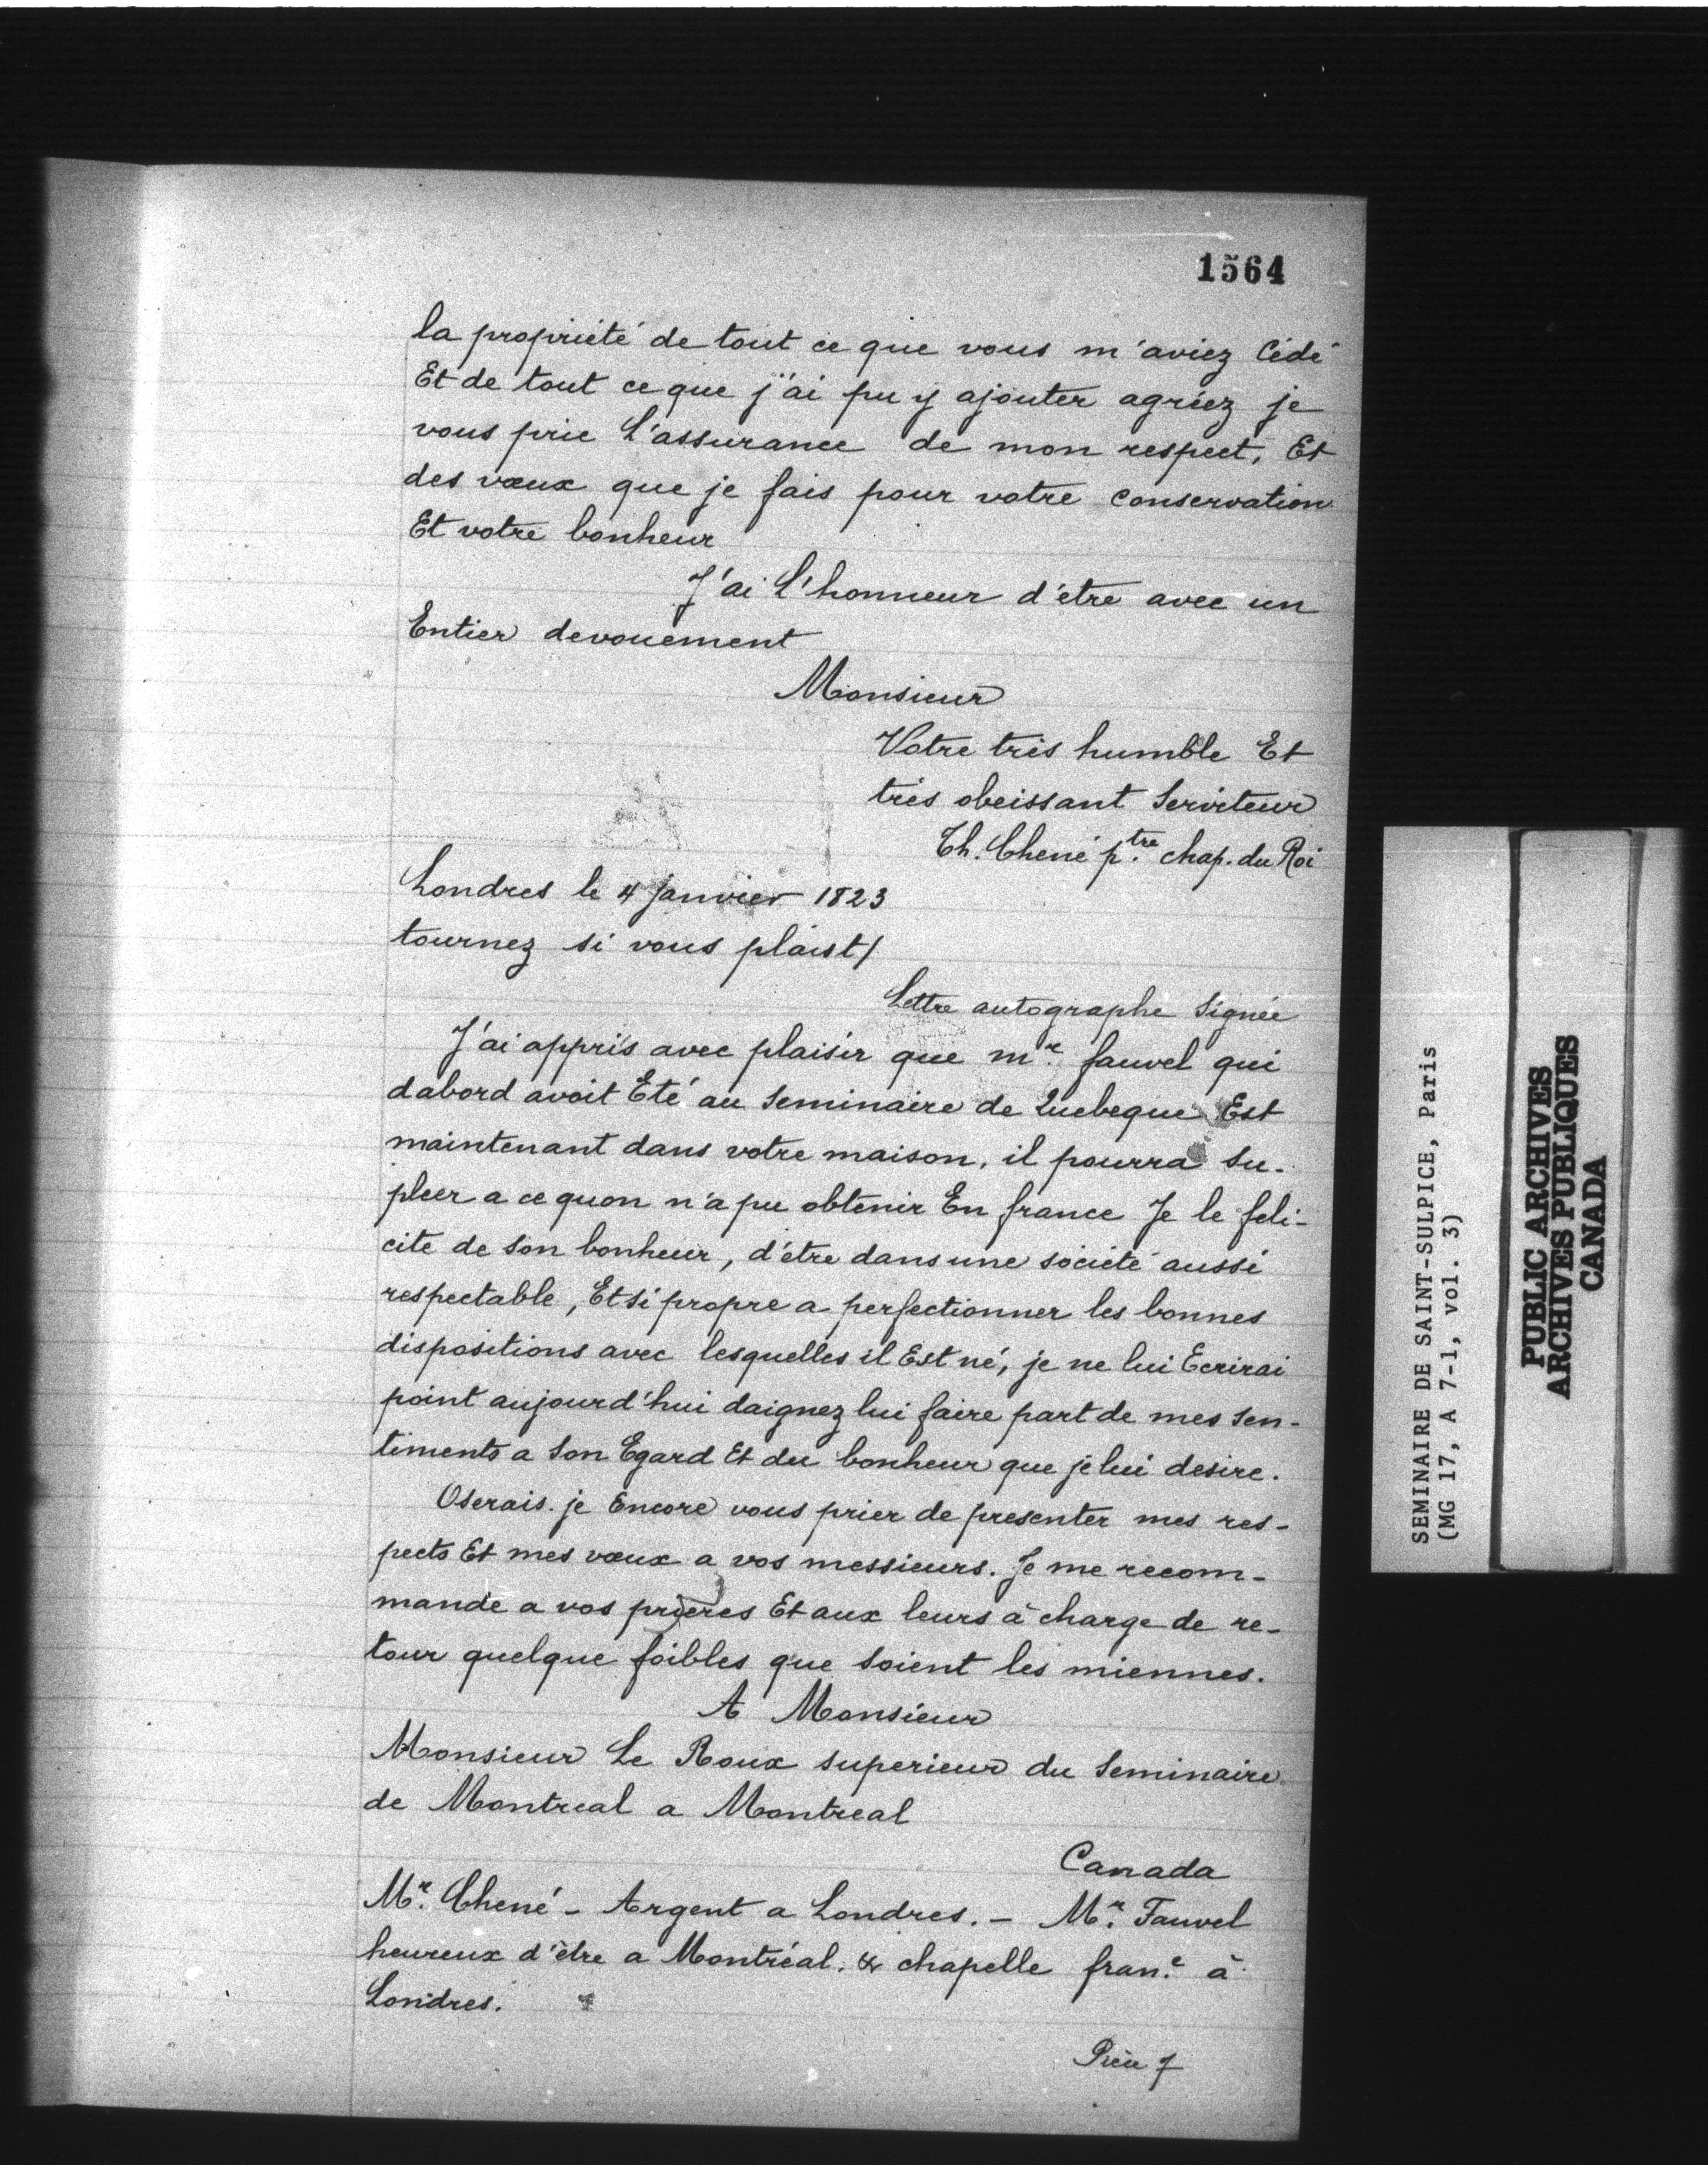 1564
la proprieté de tout ce que vous m'aviez Cédé
Et de tout ce que j'ai pu y ajouter agréez je
vous prie L'assurance de mon respect, Et
des vœux que je fais pour votre Conservation
Et votre bonheur
J'ai L'honneur d'etre avec un
Entier devouement
Monsieur
Votre très humble Et
très obeissant Serviteur
Th. Chené p.tre chap. du Roi
Londres le 4 janvier 1823
tournez si vous plaist/
Lettre autographe Signée
J'ai appris avec plaisir que mr. fauvel qui
dabord avoit Eté au Seminaire de Quebeque Est
maintenant dans votre maison, il pourra su-
pleer a ce quon n'a pu obtenir En france Je le feli-
cite de Son bonheur, d'être dans une société aussi
respectable, Et si propre a perfectionner les bonnes
dispositions avec lesquelles il Est né, je ne lui Ecrirai
point aujourd'hui daignez lui faire part de mes Sen-
timents a Son Egard Et du bonheur que je lui desire.
Oserais-je Encore vous prier de presenter mes res-
pects Et mes vœux a vos messieurs. Je me recom-
mande a vos prieres Et aux leurs à charge de re-
tour quelque foibles que soient les miennes.
A Monsieur
Monsieur Le Roux superieur du Seminaire
de Montreal a Montreal
Canada
Mr. Chené - Argent a Londres. - Mr. Fauvel
heureux d'être a Montréal. & chapelle fran.e à
Londres.
Pièce 7
SEMINAIRE DE SAINT-SULPICE, Paris
(MG 17, A 7-1, vol. 3)
PUBLIC ARCHIVES
ARCHIVES PUBLIQUES
CANADA